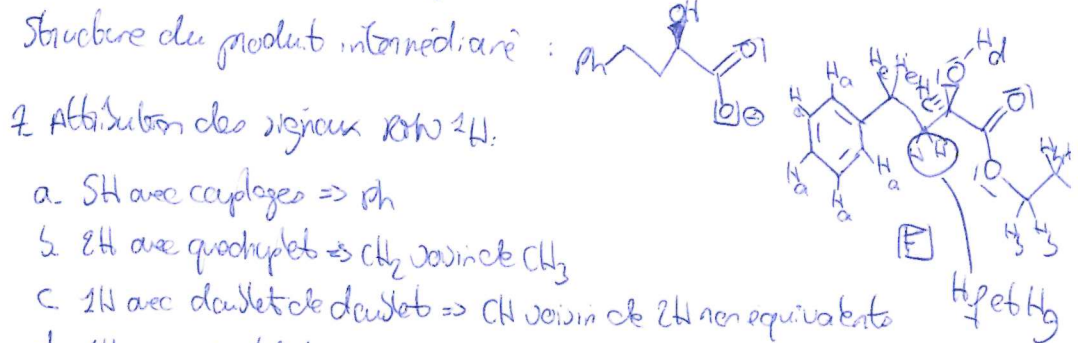 Structure du produit intermédiaire :
OH
Ph
O
O ⊖
7. Attribution des signaux RMN 1H.
a. 5H avec couplages => Ph
b. 2H avec quadruplet => CH2 voisin de CH3
c. 1H avec doublet de doublet => CH voisin de 2H non equivalents
Ha
Ha
Ha
Ha
Ha
He
He
Hc
O
Hd
O
O
H
H
E
Hf et Hg